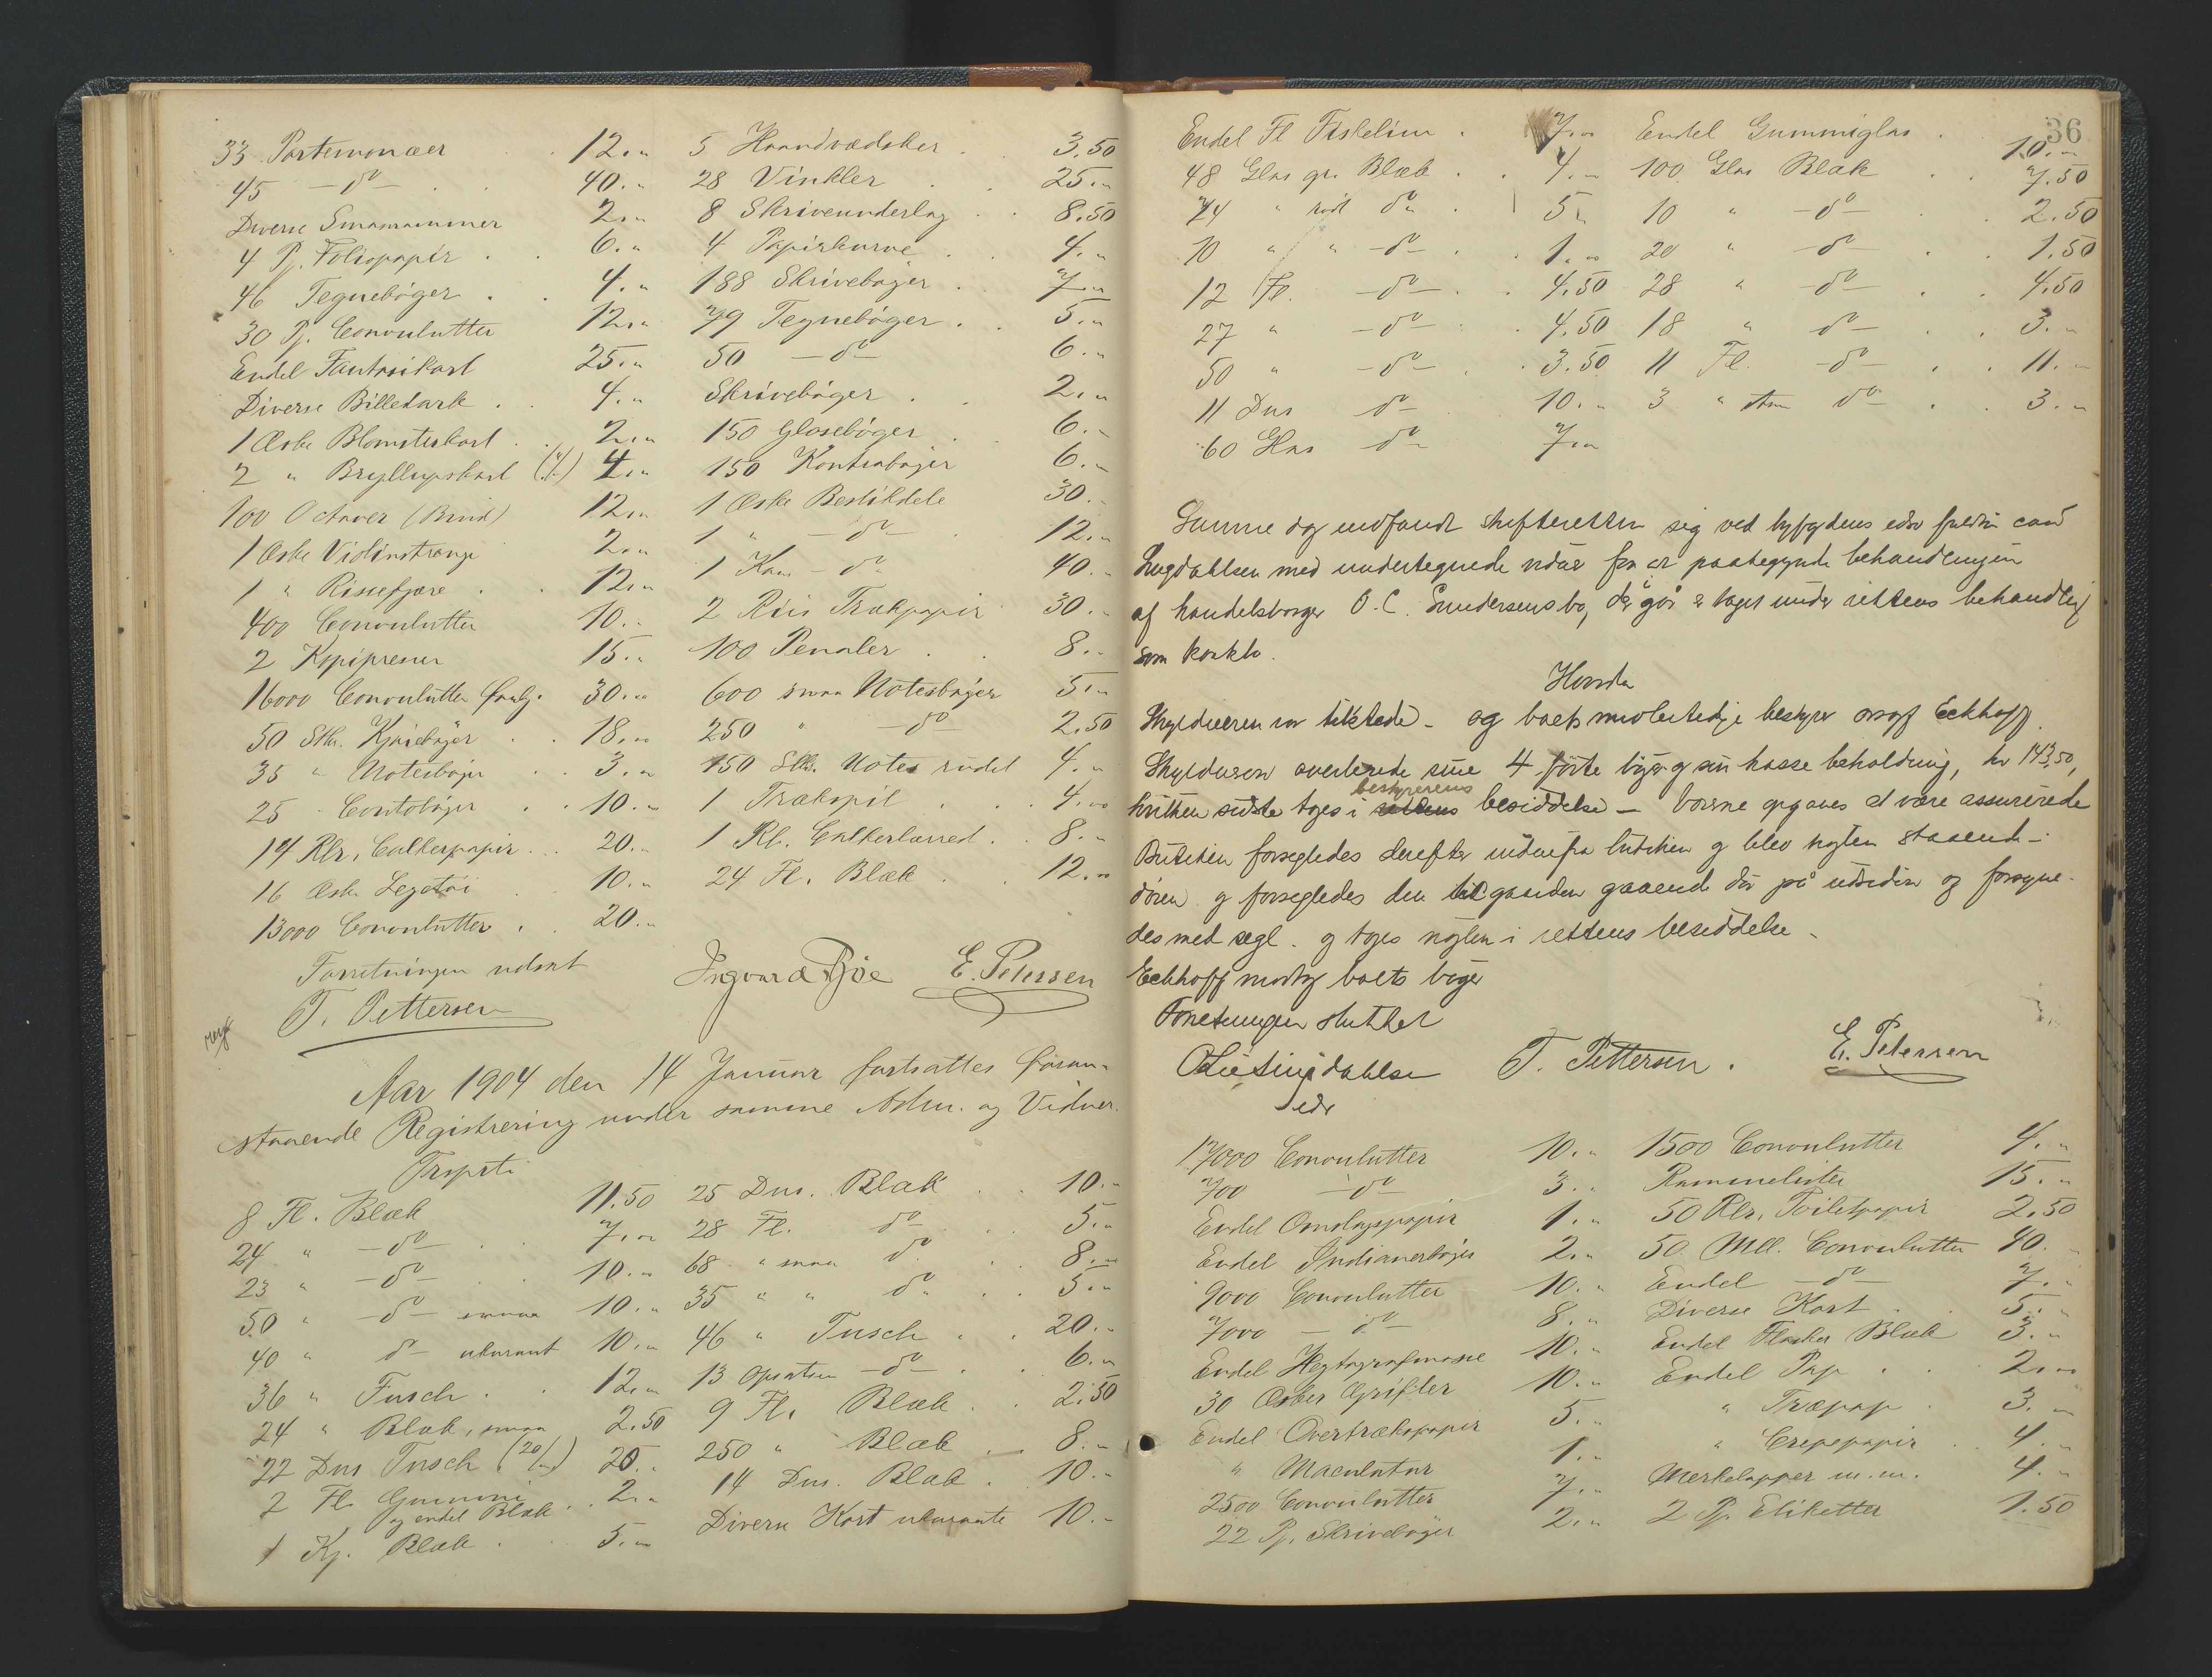 33 Portemonæer . 12.„
45 —do— . . 40.„
Diverse Smarammer 2.„
4 Pj. Foliopapir . . 6.„
46 Tegnebøger . . 4.„
30 Pj. Convolutter 12.„
Endel Fantasikort 25.„
Diverse Billedark . . 4.„
1 Æske Blomsterkort . . 2.„
2 „ Bryllupskort 4.„
100 Octaver (Bind) 12.„
1 Æske Violinstrænge 2.„
1 „ Rissefjære . . 12.„
400 Convolutter 10.„
2 Kopipresser 15.„
16000 Convolutter 30.„
50 Stk. Kladebøger . . 18.„
35 „ Notesbøger . . 3.„
25 Contobøger . . 10.„
14 Rlr. Calkerpapir . . 20.„
16 Æsk. Legetøi . 10.„
13000 Convolutter . . 20.„
5 Haandvædsker . 3.50
28 Vinkler . . 25.„
8 Skriveunderlag . . 8.50
4 Papirkurve . . 4.„
188 Skrivebøger . 7.„
79 Tegnebøger . . 5.„
50 —do— 6.„
Skrivebøger . . 2.„
150 Glosebøger . 6.„
150 Kontrabøger 6.„
1 Æske Bestikdele 30.„
1 „ —do— . 12.„
1 Kas —do 40.„
2 Riis Trækpapir 30.„
100 Penaler . . 8.„
600 smaa Notesbøger 5.„
250 „ —do— 2.50
150 Stk. Notes rudet 4.„
1 Trækspil . . 4.„
1 Rl. Calkerlærred . . 8.„
24 Fl. Blæk . . 12.„
Forretningen udsat
T. Pettersen Ingvard Bøe E. Petersen
Aar 1904 den 14 Januar fortsattes foran-
staaende Registrering under samme Adm. og Vidner.
8 Fl. Blæk 11.50
24 „ —do— . . 7.„
23 „ —do— . . 10.„
50 „ —do— smaa 10.„
40 „ do— ukurant 10.„
36 „ Tusch . . 12.„
24 „ Blæk, smaa 2.50
22 Dus Tusch 20.„
2 Fl. Gummi
og endel Blæk . . 2.„
1 Kj. Blæk . . 5.„
25 Dus. Blæk . . 10.„
28 Fl. do— . . 5.„
68 „ smaa do . . 8.„
35 „ „ do . . 5.„
46 „ Tusch . . 20.„
13 —do— . . 6.„
9 Fl. Blæk . . 2.50
250 „ Blæk . . 8.„
14 Dus. Blæk . 10.„
Diverse Kort ukurante 10.„
36
Endel Fl Fiskelim . 7.„
48 Glas gr. Blæk . . 4.„
24 „ rød do . 5.„
10 „ „ —do— . . 1.„
12 Fl. —do— . . 4.50
27 „ —do— . . 4.50
50 „ —do— . . 3.50
11 Dus do— 10.„
60 Glas do— 7.„
Endel Gummiglas . 10.„
100 Glas Blæk . . 7.50
10 „ —do— . 2.50
20 „ —do— . . 1.50
28 „ —do— . . 4.50
18 „ do— . . 3.„
11 Fl. —do— . . 11.„
3 „ do— . . 3.„
Samme dag indfandt skifteretten sig ved byfogdens edsv fuldm cand
Lügdahlsen med undertegnede vidner for at paabegynde behandlingen
af handelsborger O. C. Gundersens bo, der igår er taget under rettens behandling
som konkbo.
Skyldneren var tilstede — og boets midlertidige bestyrer orsagf Eckhoff.
Skyldneren overleverede sine 4 førte bøger og sin kasse beholdning, kr 143,50,
bestyrerens
hvilken sidste toges i rettens besiddelse — varerne opgaves at være assurerede
Butiken forsegledes derefter indenfra butiken og blev nøglen staaende i
døren og forsegledes den til gaarden gaaende dør på udsiden og forsyne-
des med segl. og toges nøglen i rettens besiddelse.
Eckhoff modtog boets bøger
Forretningen sluttet
T. Pettersen. E. Petersen
edv
17000 Convolutter 10.„
700 —do— 3.„
Endel Omslagspapir 1.„
Endel Indianerbøger 2.„
9000 Convolutter 10.„
7000 —do— 8.„
Endel Hegtografmasse 10.„
30 Æsker Grifler 10.„
Endel Overtrækspapir 5.„
„ Maculatur 1.„
2500 Convolutter 7.„
22 Pj. Skrivebøger 2.„
1500 Convolutter 4.„
Rammelister 15.„
50 Rlr. Toiletpapir 2.50
50 Mll. Convolutter 40.„
Endel —do— 7.„
Diverse Kort . . 5.„
Endel Flasker Blæk 3.„
Endel Pap . . 2.„
„ Træpap . 3.„
„ Crepepapir . 4.„
Merkelapper m.m. 4.„
2 Pj. Etiketter 1.50